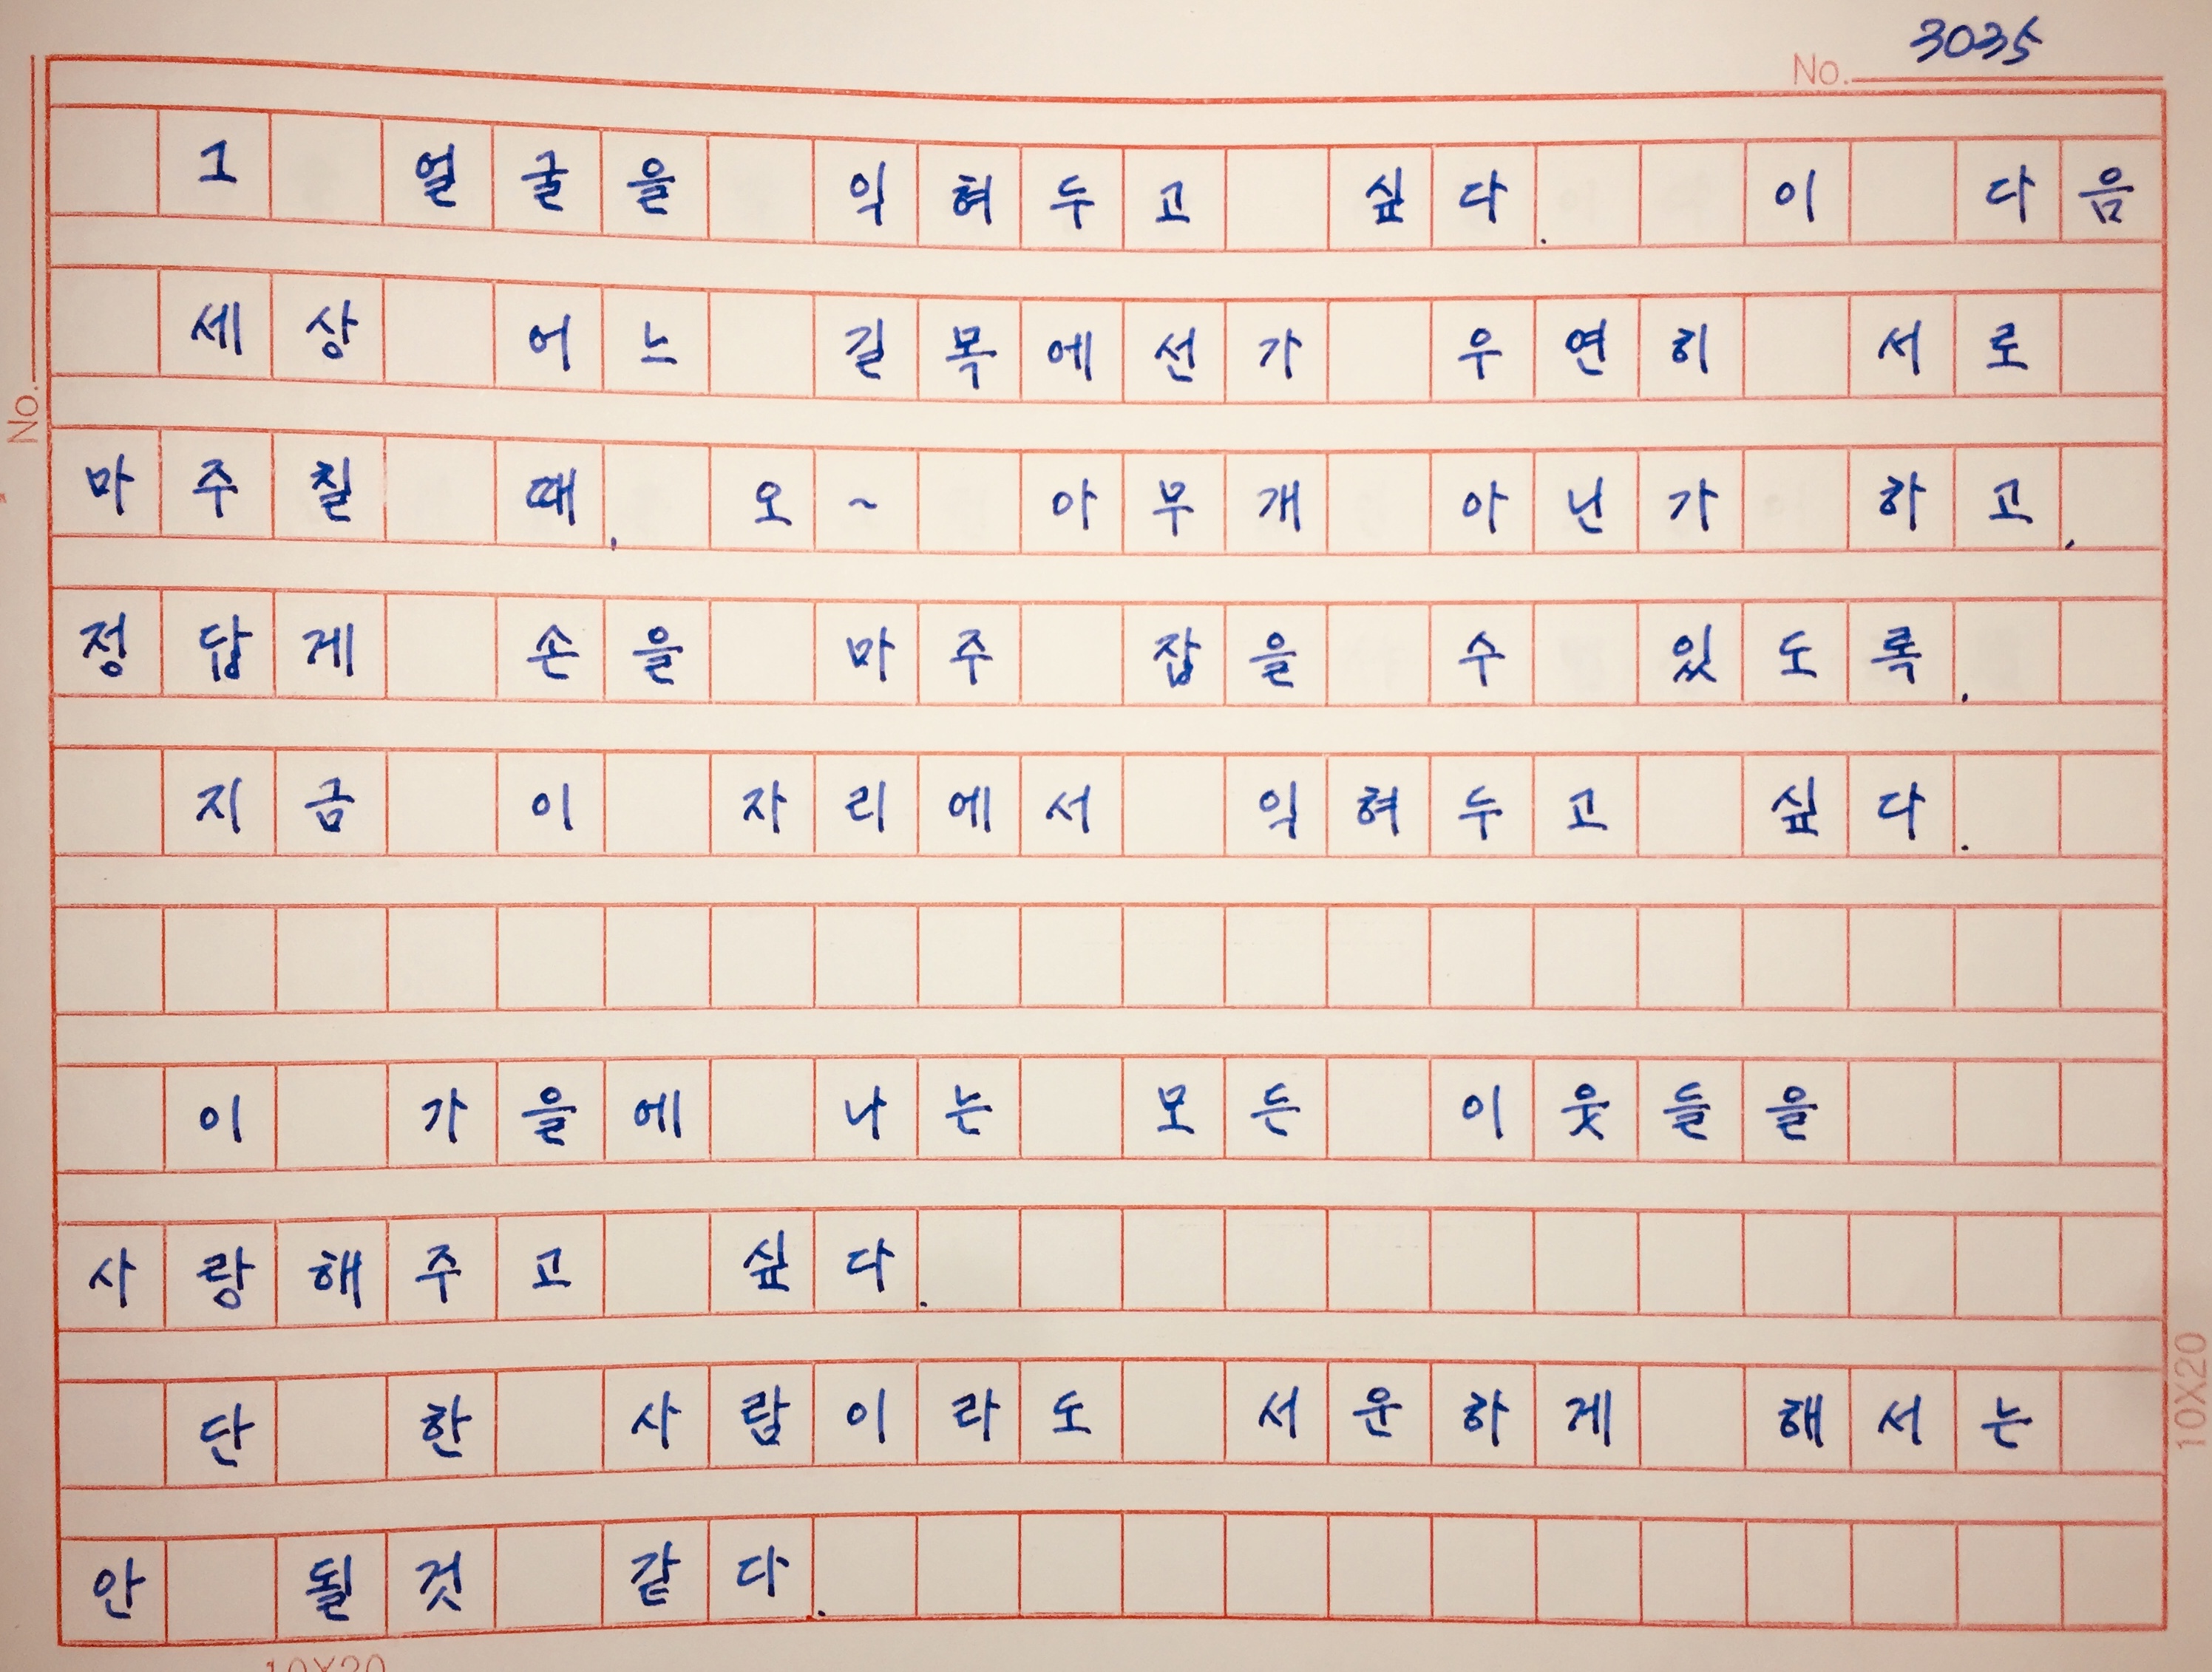 3035
No.
그 얼굴을 익혀두고 싶다. 이 다음
세상 어느 길목에선가 우연히 서로
마주칠 때, 오~ 아무개 아닌가 하고,
No.
정답게 손을 마주 잡을 수 있도록,
지금 이 자리에서 익혀두고 싶다.
이 가을에 나는 모든 이웃들을
사랑해주고 싶다.
단 한 사람이라도 서운하게 해서는
10X20
안 될것 같다.
10X20